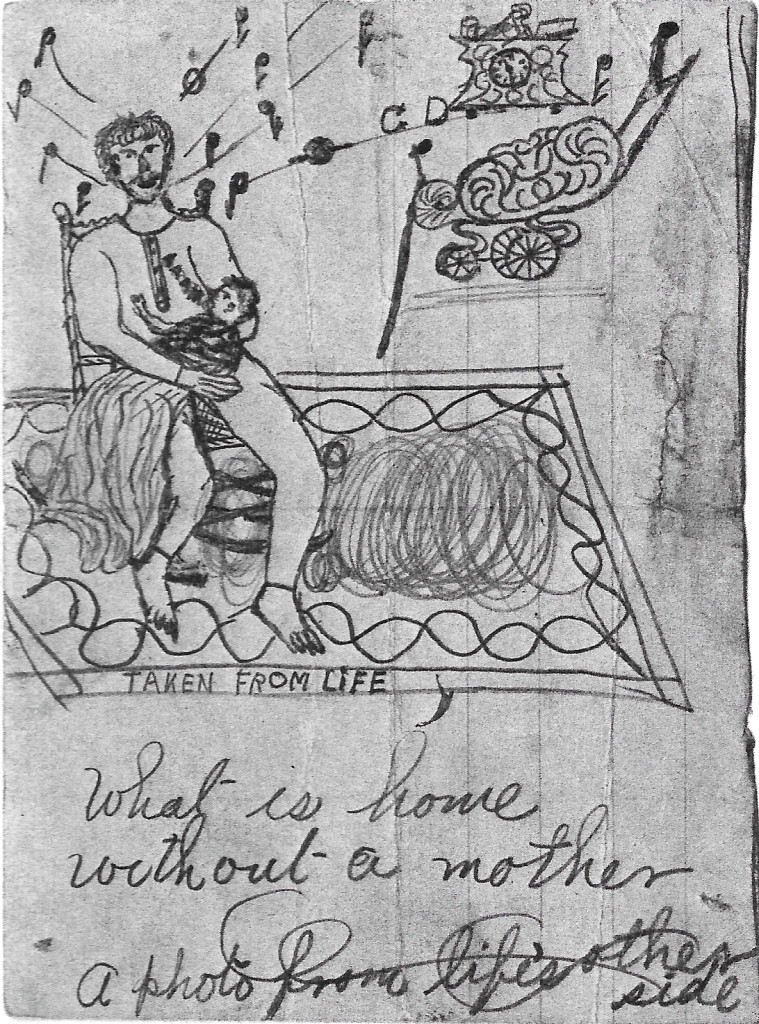 G D
TAKEN FROM LIFE
What is home
without a mother
a photo from life's other
side